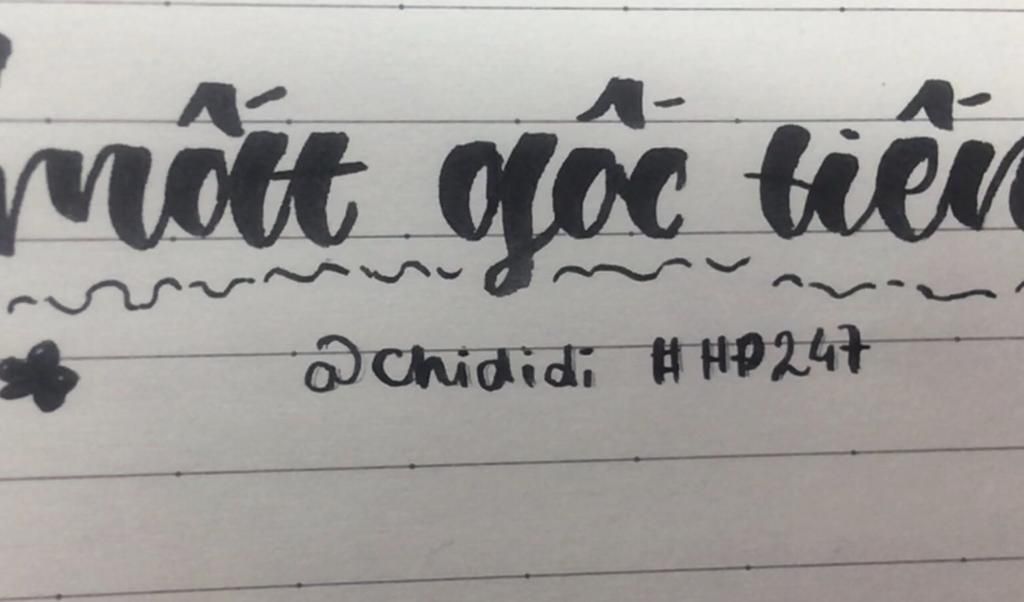 mất gốc tiến
@Chididi #HP247